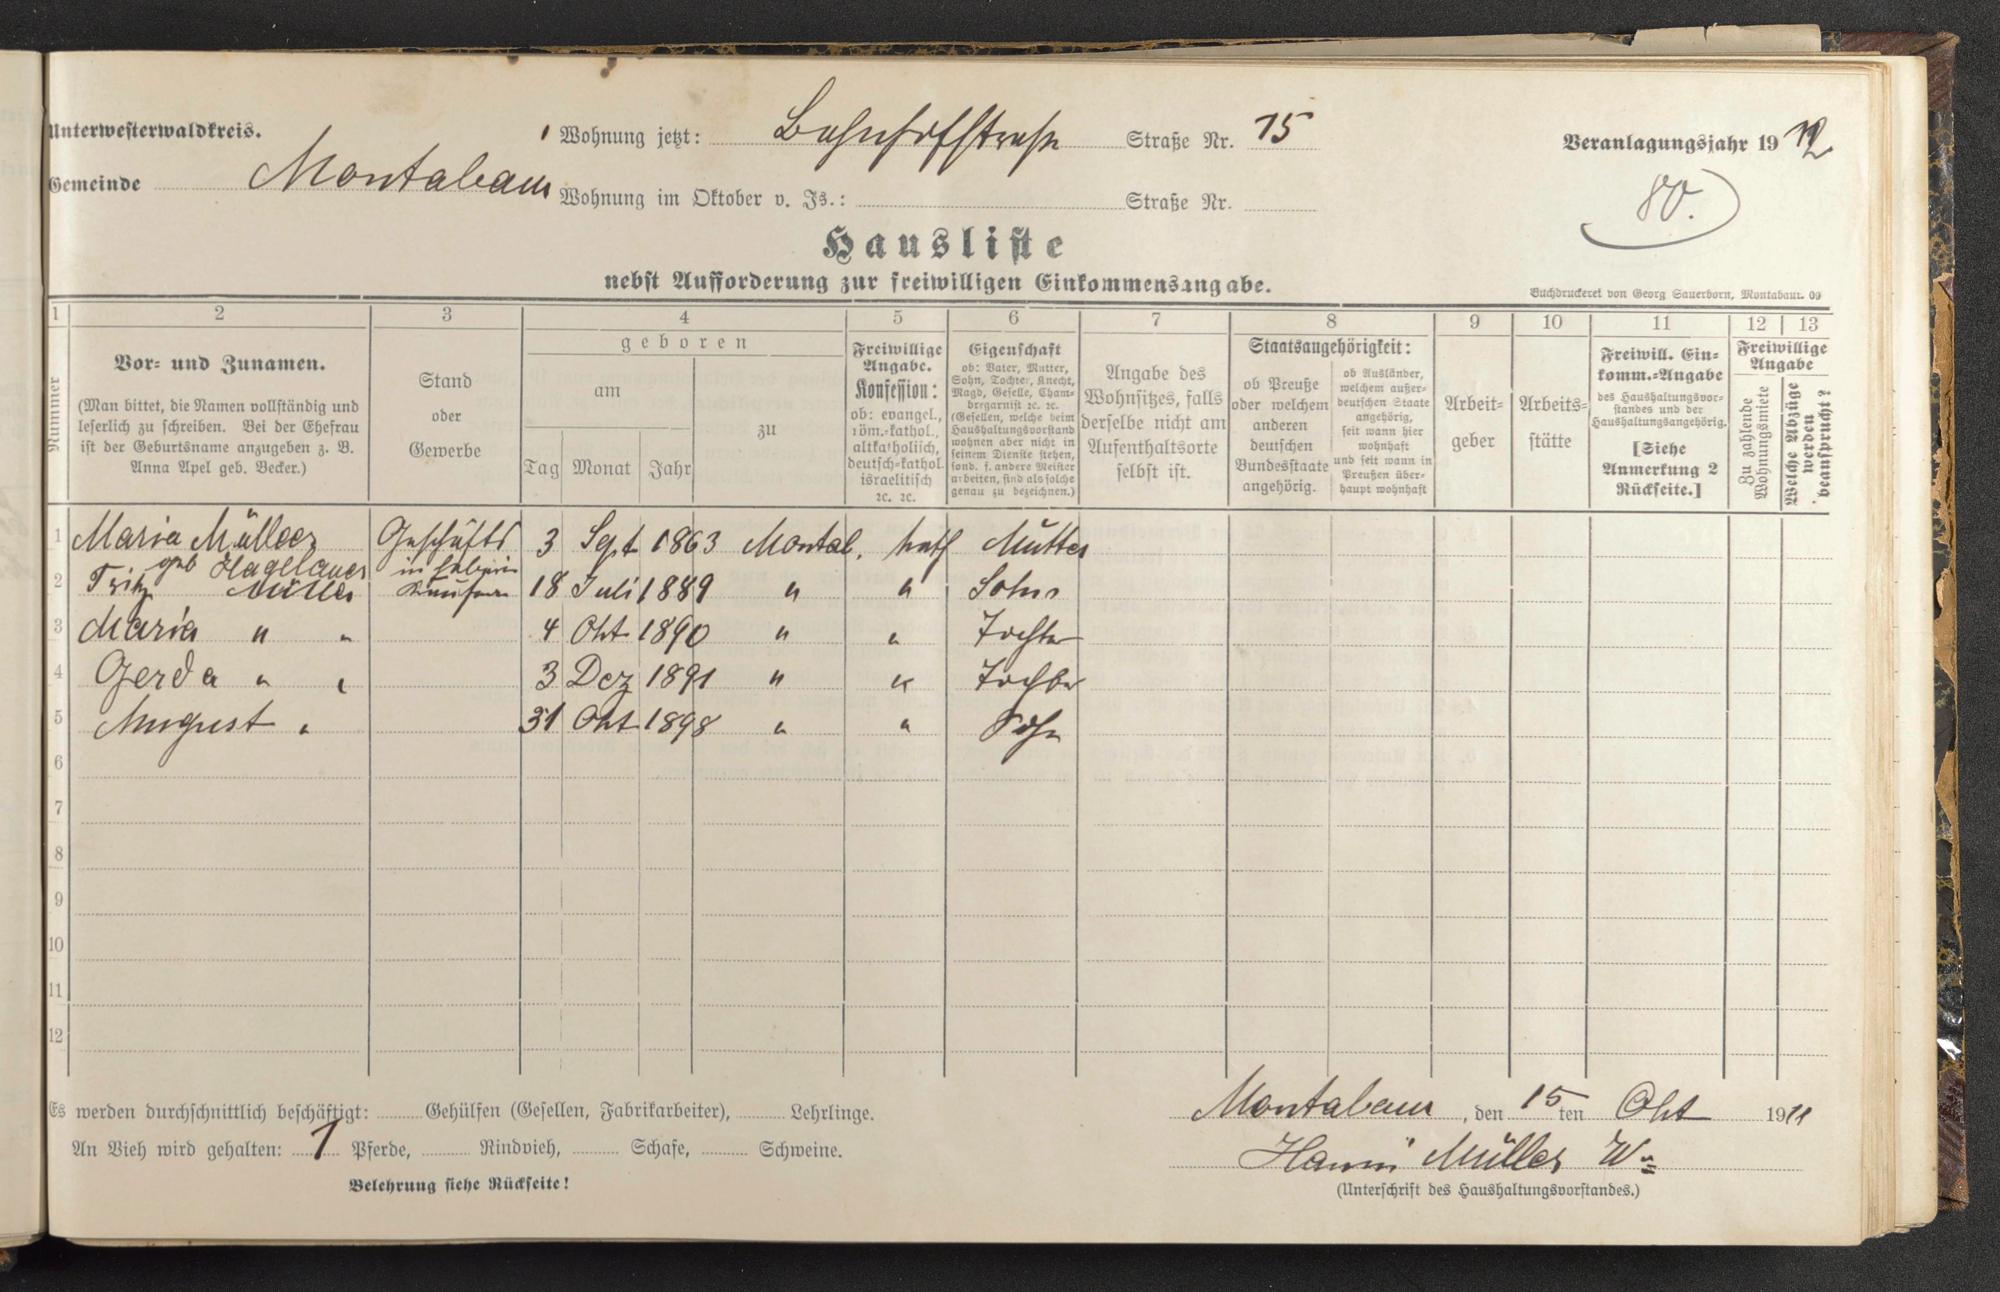 Unterwesterwaldkreis.
Wohnung jetzt: Bahnhofstraße Straße Nr. 15
Veranlagungsjahr 1912
Gemeinde Montabaur
Wohnung im Oktober v. Js.: Straße Nr.
80.
Hausliste
nebst Aufforderung zur freiwilligen Einkommensangabe.
Buchdruckerei von Georg Sauerborn, Montabaur. 09
1 2 3 4 5 6 7 8 9 10 11 12 13
Nummer
Vor- und Zunamen.
(Man bittet, die Namen vollständig und
leserlich zu schreiben. Bei der Ehefrau
ist der Geburtsname anzugeben z. B.
Anna Apel geb. Becker.)
Stand
oder
Gewerbe
geboren
am
Tag Monat Jahr
zu
Freiwillige
Angabe.
Konfession:
ob: evangel.,
röm.-kathol.,
altkatholisch,
deutsch-kathol.
israelitisch
ꝛc. ꝛc.
Eigenschaft
ob: Vater, Mutter,
Sohn, Tochter, Knecht,
Magd, Geselle, Cham-
bregarnist ꝛc. ꝛc.
(Gesellen, welche beim
Haushaltungsvorstand
wohnen aber nicht in
seinem Dienste stehen,
sond. f. andere Meister
arbeiten, sind als solche
genau zu bezeichnen.)
Angabe des
Wohnsitzes, falls
derselbe nicht am
Aufenthaltsorte
selbst ist.
Staatsangehörigkeit:
ob Preuße
oder welchem
anderen
deutschen
Bundesstaate
angehörig.
ob Ausländer,
welchem außer-
deutschen Staate
angehörig,
seit wann hier
wohnhaft
und seit wann in
Preußen über-
haupt wohnhaft
Arbeit-
geber
Arbeits-
stätte
Freiwill. Ein-
komm.-Angabe
des Haushaltungsvor-
standes und der
Haushaltungsangehörig.
[Siehe
Anmerkung 2
Rückseite.]
Freiwillige
Angabe
Zu zahlende
Wohnungsmiete
Welche Abzüge
werden
beansprucht?
1 Maria Müller Geschäfts 3 Sept 1863 Montab. kath Mutter
geb Hagelauer inhaberin
2 Fritz Müller Kaufm 18 Juli 1889 " " Sohn
3 Maria " " 4 Okt 1890 " " Tochter
4 Gerda " " 3 Dez 1891 " " Tochter
5 August " 31 Okt 1898 " " Sohn
6
7
8
9
10
11
12
Es werden durchschnittlich beschäftigt: Gehülfen (Gesellen, Fabrikarbeiter), Lehrlinge.
An Vieh wird gehalten: 1 Pferde, Rindvieh, Schafe, Schweine.
Belehrung siehe Rückseite!
Montabaur, den 15ten Okt 1911
Müller Ww
(Unterschrift des Haushaltungsvorstandes.)